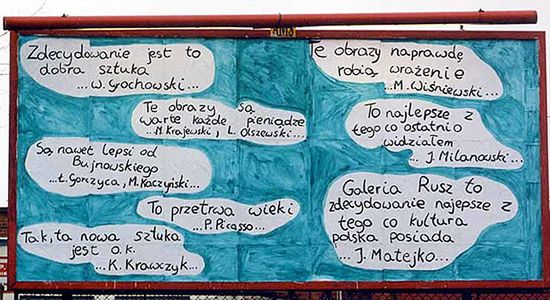 Zdecydowanie jest to
dobra sztuka
...W. Grochowski...
Te obrazy są
warte każde pieniądze
...M. Krajewski, L. Olszewski...
Są nawet lepsi od
Bujnowskiego
...Ł. Gorczyca, M. Kaczyński...
To przetrwa wieki
...P. Picasso...
Tak, ta nowa sztuka
jest o.k.
...K. Krawczyk...
Te obrazy naprawdę
robią wrażenie
...M. Wiśniewski...
To najlepsze z
tego co ostatnio
widziałem
... J. Milanowski...
Galeria Rusz to
zdecydowanie najepsze z
tego co kultura
polska posiada
... J. Matejko...